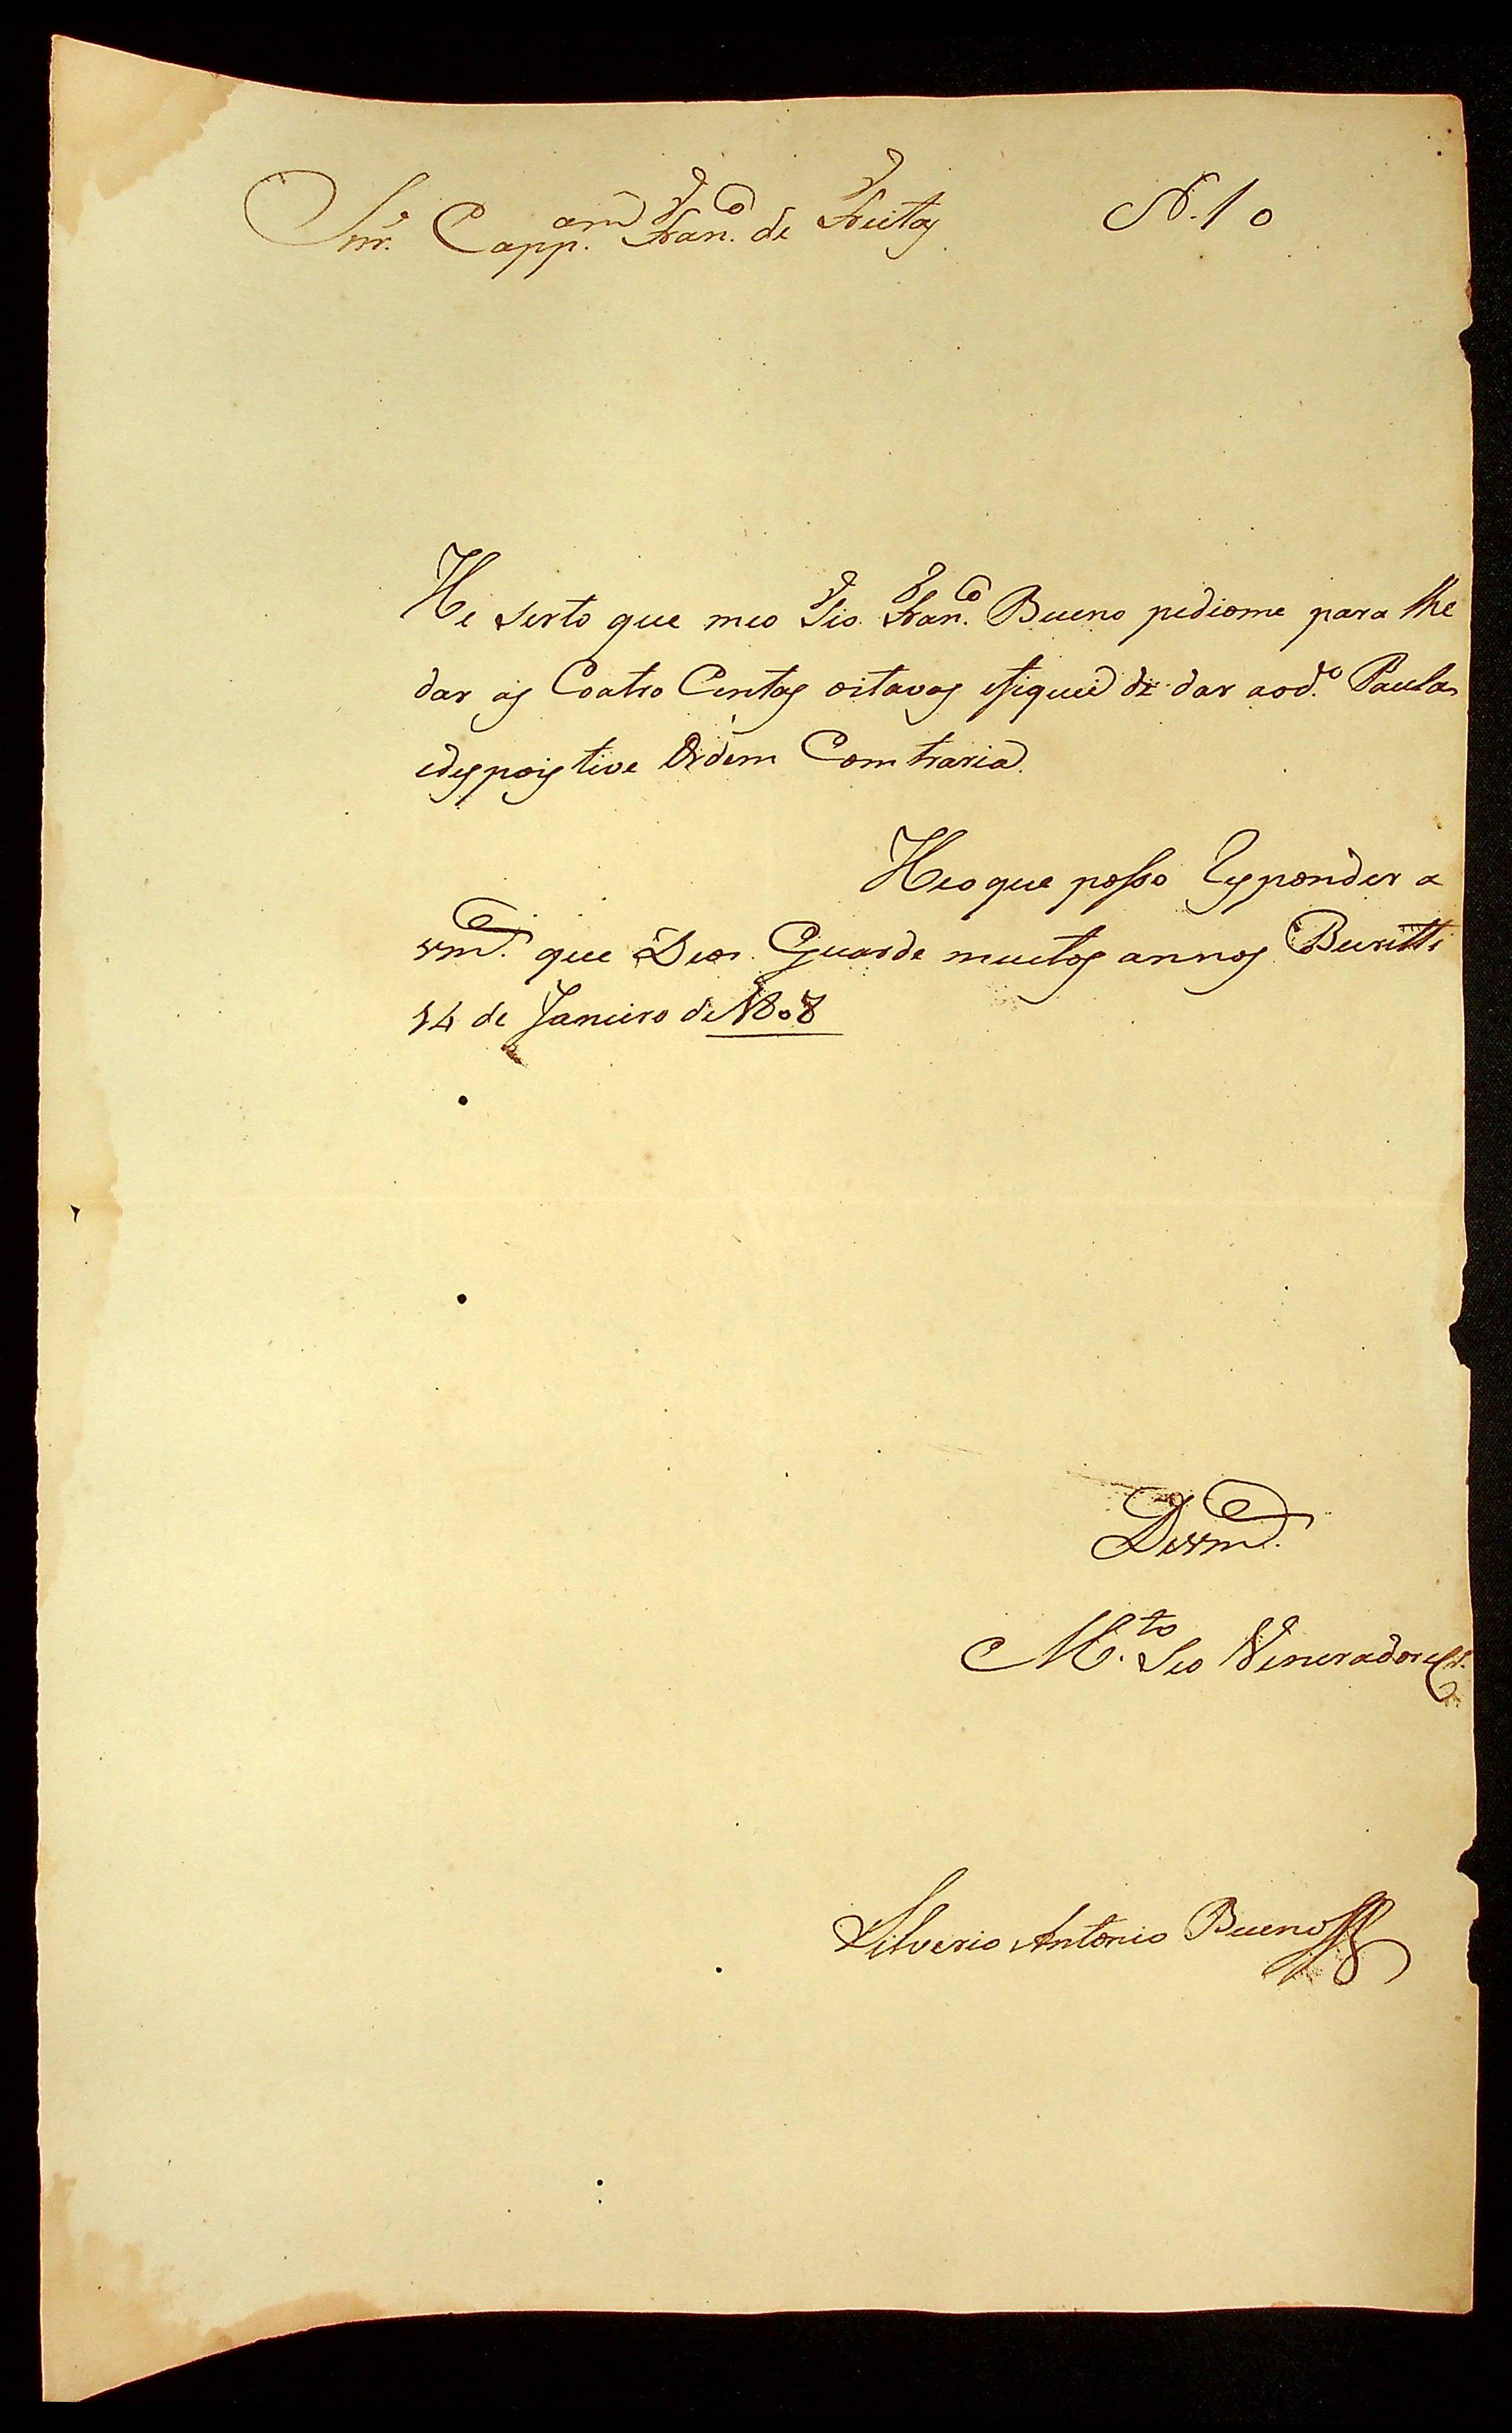 Snr. Capp.am Fran.co de Freitas N. 10
He serto que meo Tio Fran.co Bueno pediome para lhe
dar as Coatro Centas oitavas efiquei de dar aod.o Paula
edespois tive Ordem Comtraria.
Heoque posso Responder a
vm.ce que Deos Guarde muitos annos Buritti
14 de Janeiro de 1808
Devm.ce
M.to Seo Venerador
Silverio Antonio Bueno